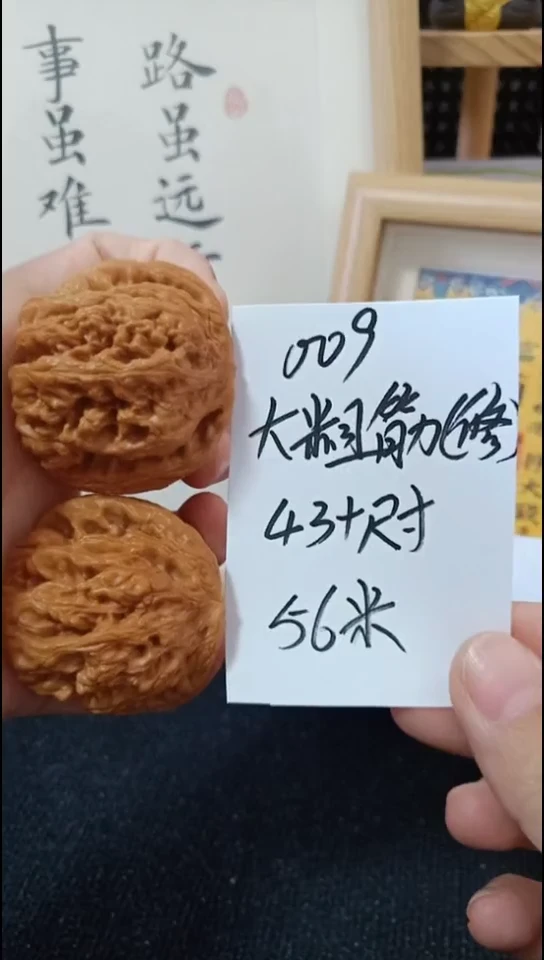 路虽远
事虽难
009
大粗筋(修)
43+尺寸
56米